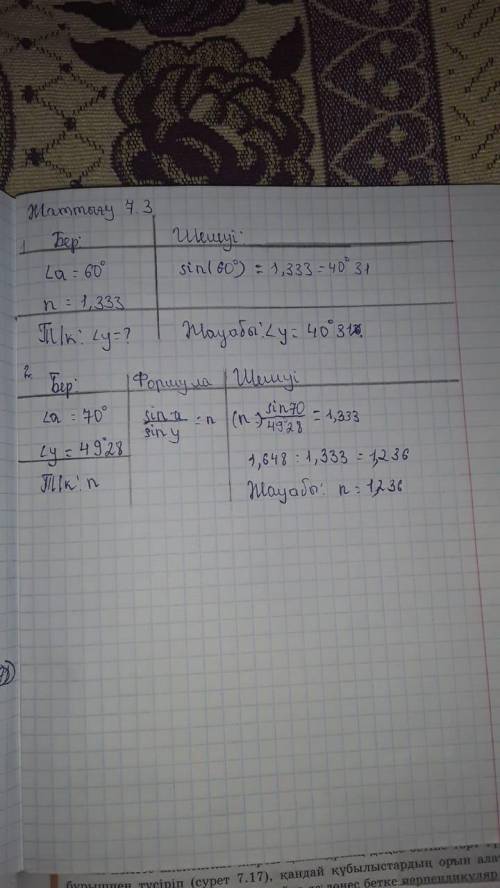 Жаттығу 7.3
1 Бер: Шешуі:
∠a = 60° sin(60°) = 1,333 = 40°31
n = 1,333
Т/к: ∠y = ? Жауабы: ∠y = 40°31
2 Бер: Формула Шешуі
∠a = 70° sin a / sin y = n (n =) sin70 / 49°28 = 1,333
∠y = 49°28 1,648 : 1,333 = 1,236
Т/к: n Жауабы: n = 1,236
бұрышпен түсіріп (сурет 7.17), қандай құбылыстардың орын
бетке перпендикуляр